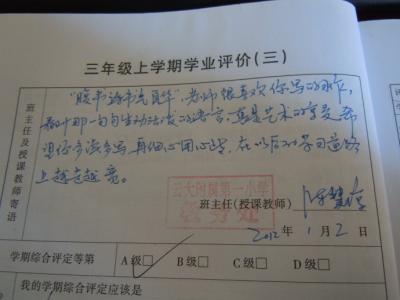 三年级上学期学业评价(三)
班主任及授课教师寄语
"腹有诗书气自华",老师很喜欢你写的习作,
那一句句生动活泼的语言,真是艺术的享受,希
望你多读多写,再细心用心些,在以后的学习道路
上越走越亮。
云大附属第一小学
教务处
班主任(授课教师)
2012年1月2日
学期综合评定等第 A级□ B级□ C级□ D级□
我的学期综合评定应该是